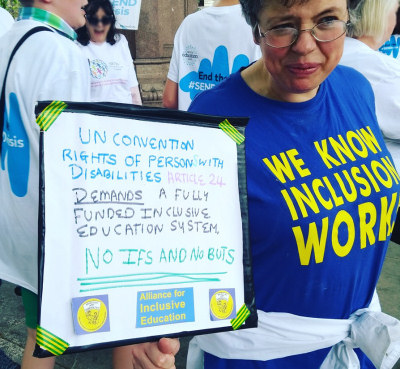 UN CONVENTION
RIGHTS OF PERSON WITH
DISABILITIES ARTICLE 24.
DEMANDS A FULLY
FUNDED INCLUSIVE
EDUCATION SYSTEM.
NO IFS AND NO BUTS
Alliance for
Inclusive
Education
WE KNOW
INCLUSION
WORK
End the
SEND